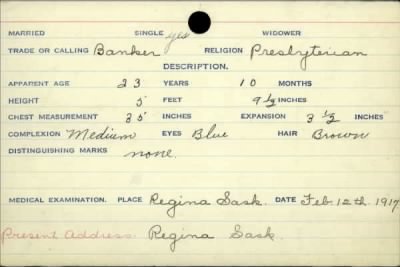 MARRIED SINGLE yes WIDOWER
TRADE OR CALLING Banker RELIGION Presbyterian
DESCRIPTION.
APPARENT AGE 23 YEARS 10 MONTHS
HEIGHT 5 FEET 9 1/2 INCHES
CHEST MEASUREMENT 35 INCHES EXPANSION 3 1/2 INCHES
COMPLEXION Medium EYES Blue HAIR Brown
DISTINGUISHING MARKS none.
MEDICAL EXAMINATION. PLACE Regina Sask. DATE Feb. 12th. 1917
Present Address. Regina Sask.